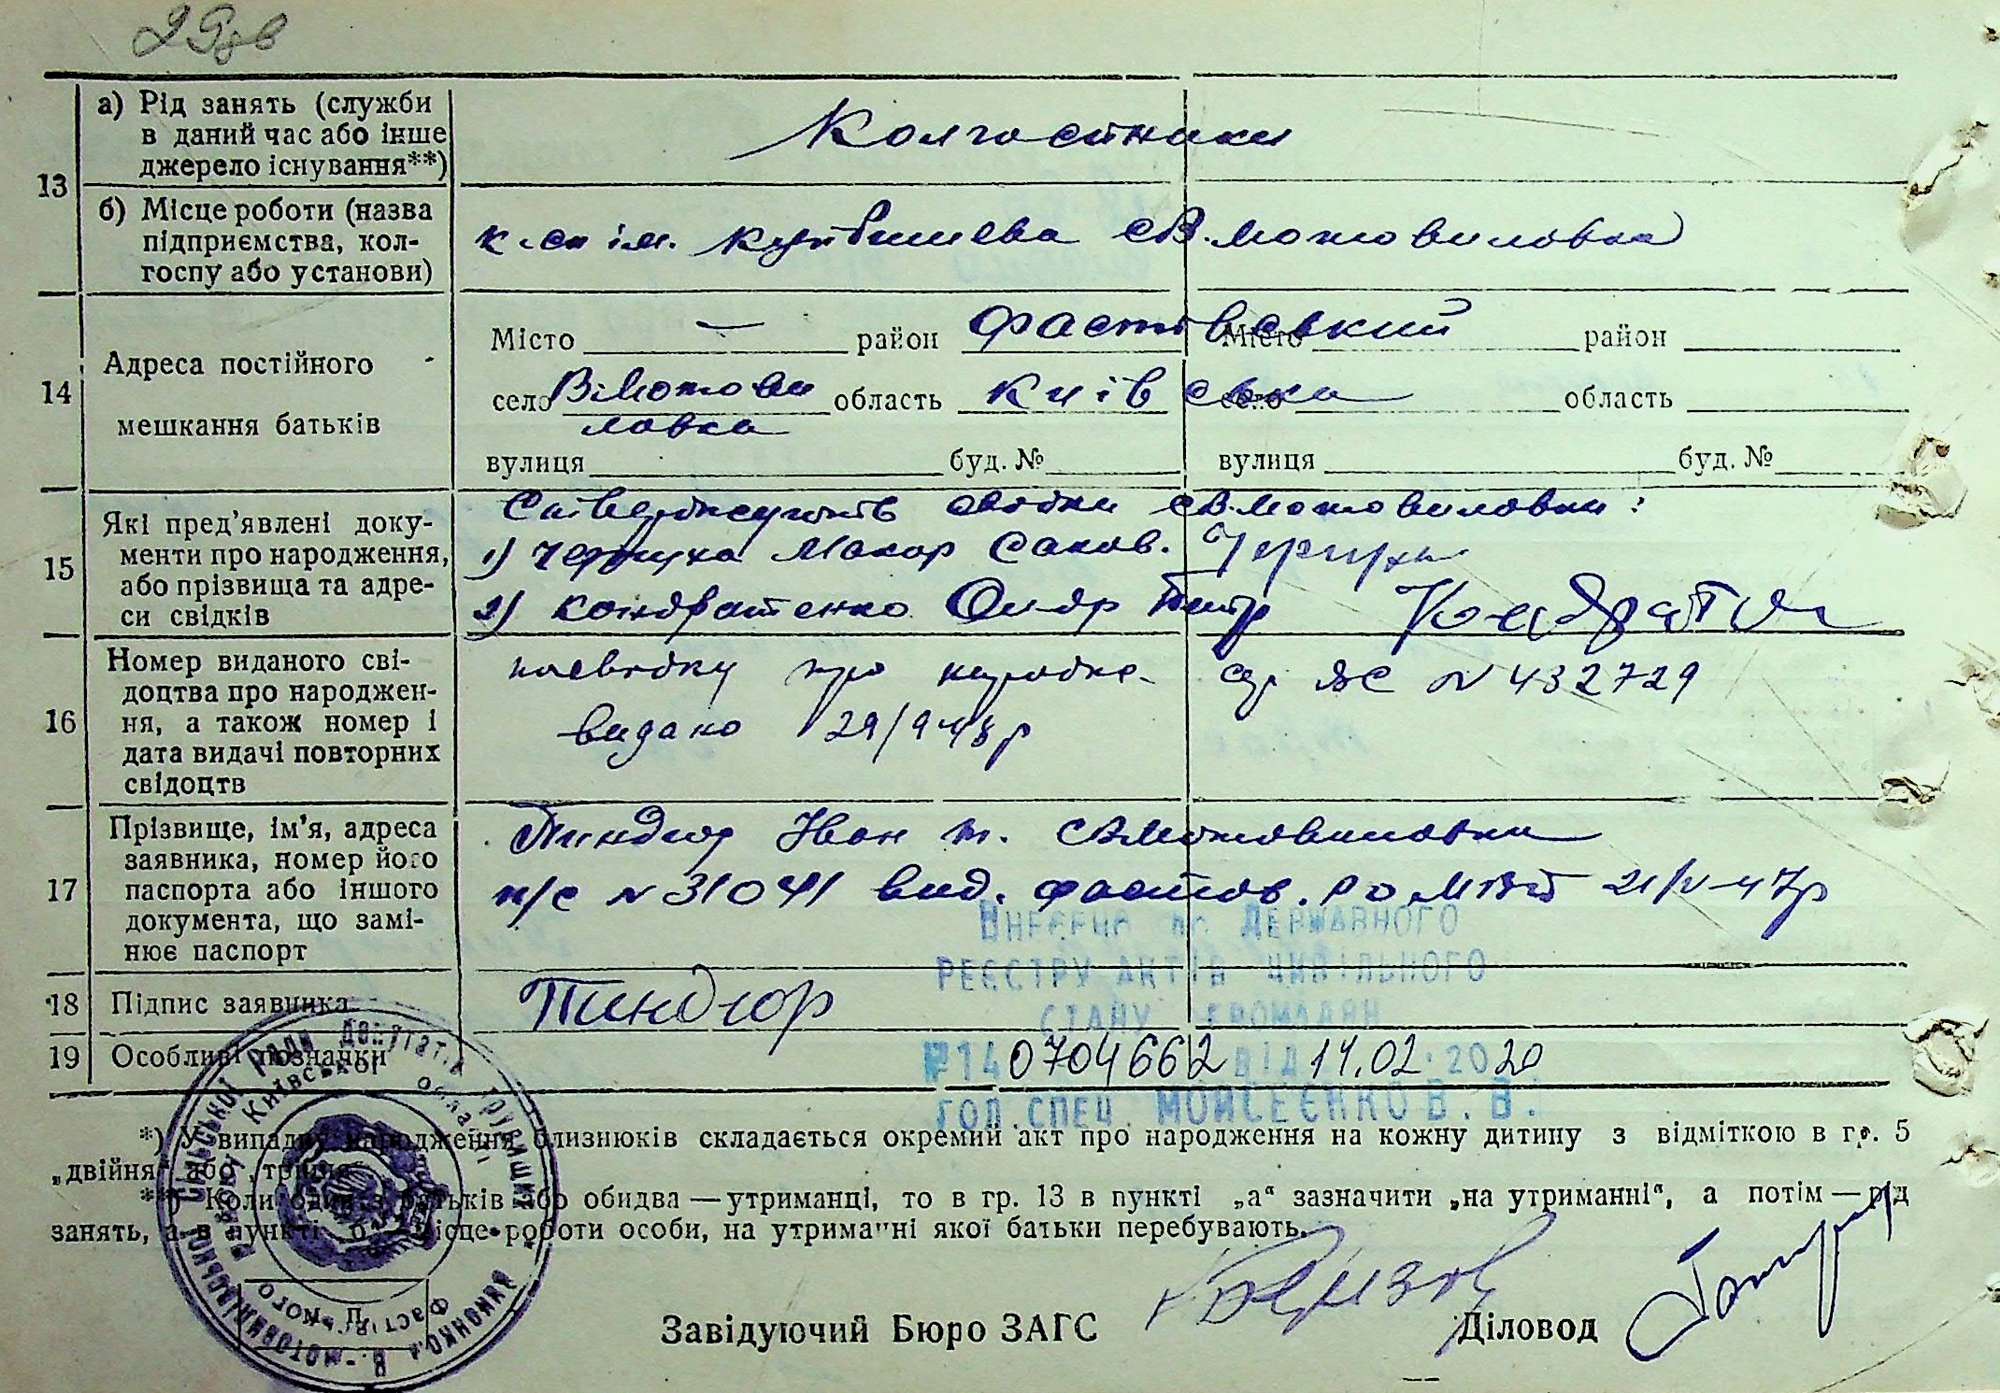 29зв
13 а) Рід занять (служби в даний час або інше джерело існування**) Колгоспники
б) Місце роботи (назва підприємства, колгоспу або установи) к-сп ім. Куйбишева с В. Мотовиловка
14 Адреса постійного мешкання батьків
Місто — район Фастівський Місто район
село В Мотови область Київська село область
ловка
вулиця буд. № вулиця буд. №
15 Які пред'явлені документи про народження, або прізвища та адреси свідків
Стверджують свідки с В. Мотовиловки:
1) Чернуха Макар Саков.
2) Кондратенко Петр
16 Номер виданого свідоцтва про народження, а також номер і дата видачі повторних свідоцтв
посвідку про народже- N 432729
видано 29/9-48р
17 Прізвище, ім'я, адреса заявника, номер його паспорта або іншого документа, що замінює паспорт
Тиндюр Іван Т. с В Мотовиловки
п/с N 31041 вид. Фастов. Ро 21/V-47р
Внесено до Державного
реєстру актів цивільного
стану громадян
18 Підпис заявника Тиндюр
19 Особливі позначки
№14 0704662 від 14.02.2020
гол. спец. Мойсеєнко В. В.
*) У випадку народження близнюків складається окремий акт про народження на кожну дитину з відміткою в гр. 5
„двійня" або „трійня"
**) Коли один з батьків або обидва — утриманці, то в гр. 13 в пункті „а" зазначити „на утриманні", а потім — рід
занять, а в пункті „б" місце роботи особи, на утриманні якої батьки перебувають.
Завідуючий Бюро ЗАГС Діловод